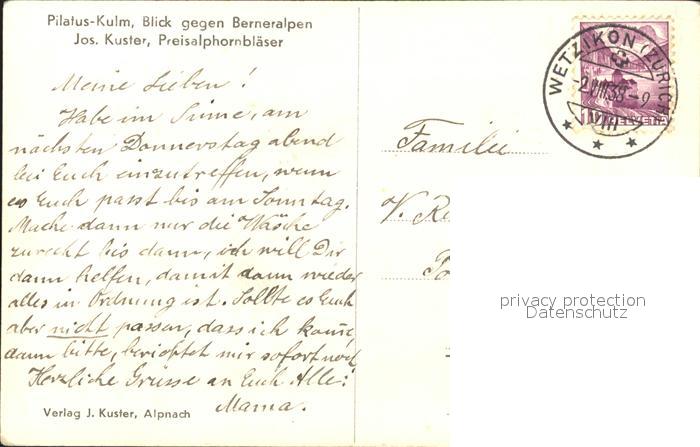 Pilatus-Kulm, Blick gegen Berneralpen
Jos. Kuster, Preisalphornbläser
Meine Lieben!
Habe im Sinne, am
nächsten Donnerstag abend
bei Euch einzutreffen, wenn
es Euch passt bis am Sonntag.
Mache dann nur die Wäsche
zurecht bis dann, ich will Dir
dann helfen, damit dann wieder
alles in Ordnung ist. Sollte es Euch
aber nicht passen, dass ich komme,
dann bitte, berichtet mir sofort noch
Herzliche Grüsse an Euch Alle!
Mama.
Verlag J. Kuster, Alpnach
WETZIKON (ZÜRICH)
-2.VIII.38.-9
VIII
HELVETIA
Familie
V. Re
privacy protection
Datenschutz